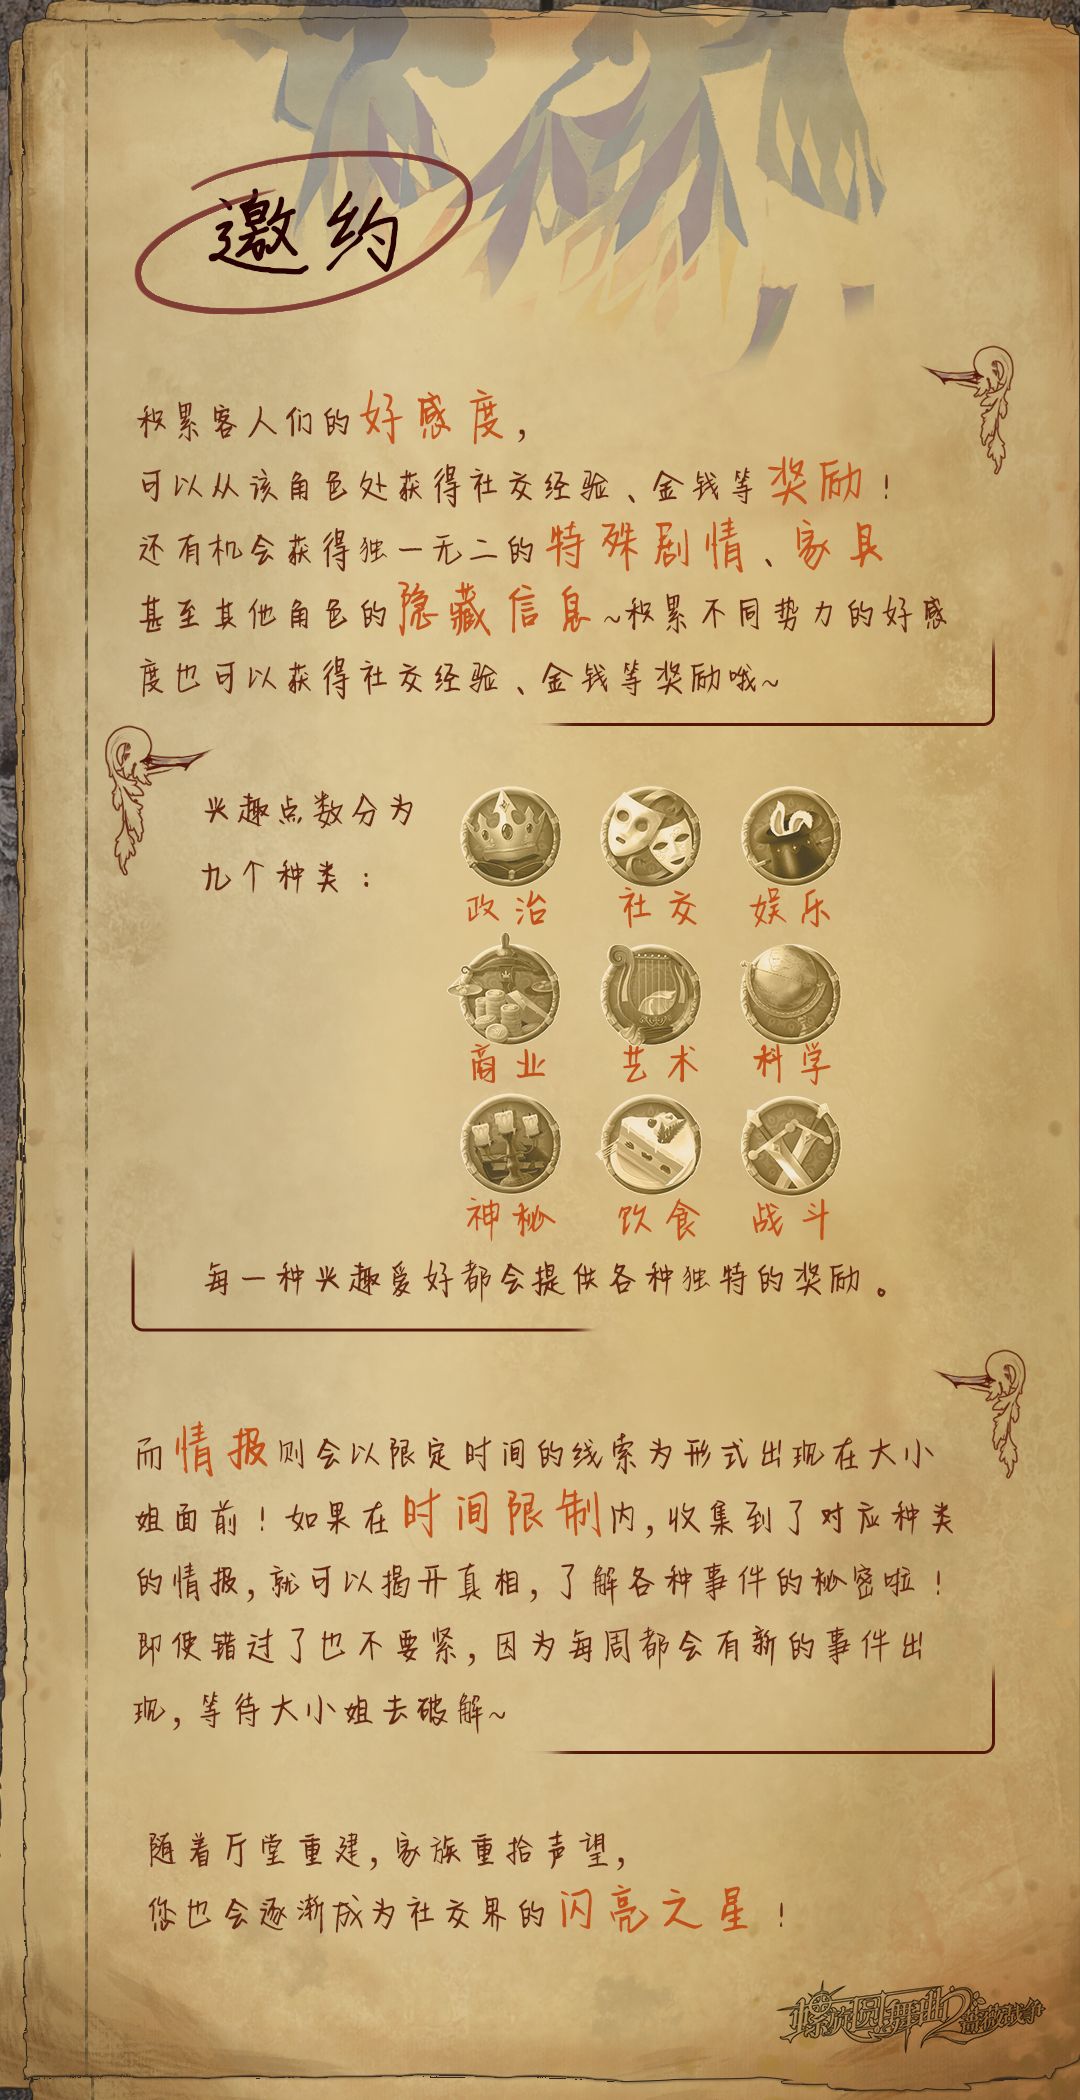 邀约
积累客人们的好感度，
可以从该角色处获得社交经验、金钱等奖励！
还有机会获得独一无二的特殊剧情、家具
甚至其他角色的隐藏信息~积累不同势力的好感
度也可以获得社交经验、金钱等奖励哦~
兴趣点数分为
九个种类：
政治 社交 娱乐
商业 艺术 科学
神秘 饮食 战斗
每一种兴趣爱好都会提供各种独特的奖励。
而情报则会以限定时间的线索为形式出现在大小
姐面前！如果在时间限制内，收集到了对应种类
的情报，就可以揭开真相，了解各种事件的秘密啦！
即使错过了也不要紧，因为每周都会有新的事件出
现，等待大小姐去破解~
随着厅堂重建，家族重拾声望，
您也会逐渐成为社交界的闪亮之星！
螺旋圆舞曲2蔷薇战争